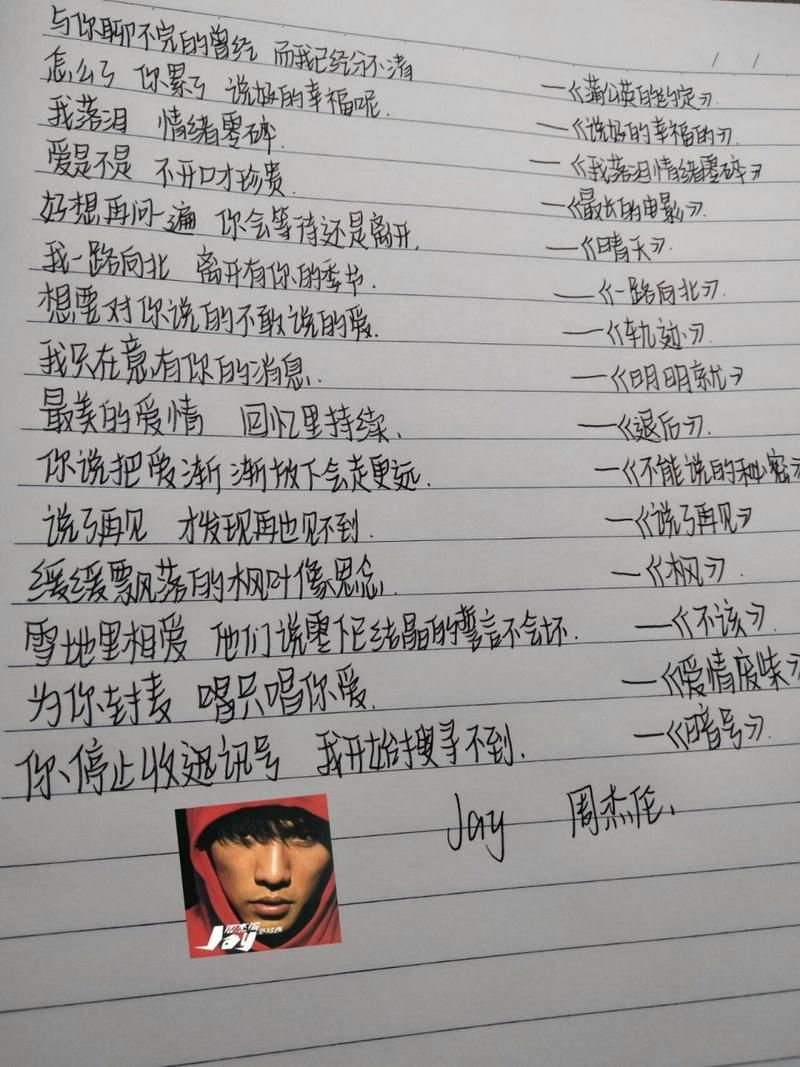 与你聊不完的曾经 而我已经分不清 —《蒲公英的约定》
怎么了 你累了 说好的幸福呢. —《说好的幸福的》
我落泪 情绪零碎. —《我落泪情绪零碎》
爱是不是 不开口才珍贵. —《最长的电影》.
好想再问一遍 你会等待还是离开. —《晴天》.
我一路向北 离开有你的季节. —《一路向北》.
想要对你说的不敢说的爱. —《轨迹》.
我只在意有你的消息. —《明明就》
最美的爱情 回忆里待续. —《退后》.
你说把爱渐渐放下会走更远. —《不能说的秘密》
说了再见 才发现再也见不到. —《说了再见》
缓缓飘落的枫叶像思念. —《枫》.
雪地里相爱 他们说零下已结晶的誓言不会坏. —《不该》.
为你封麦 唱只唱你爱. —《爱情废柴》
你停止收迅讯号 我开始搜寻不到. —《暗号》.
Jay 周杰伦.
周杰倫
Jay